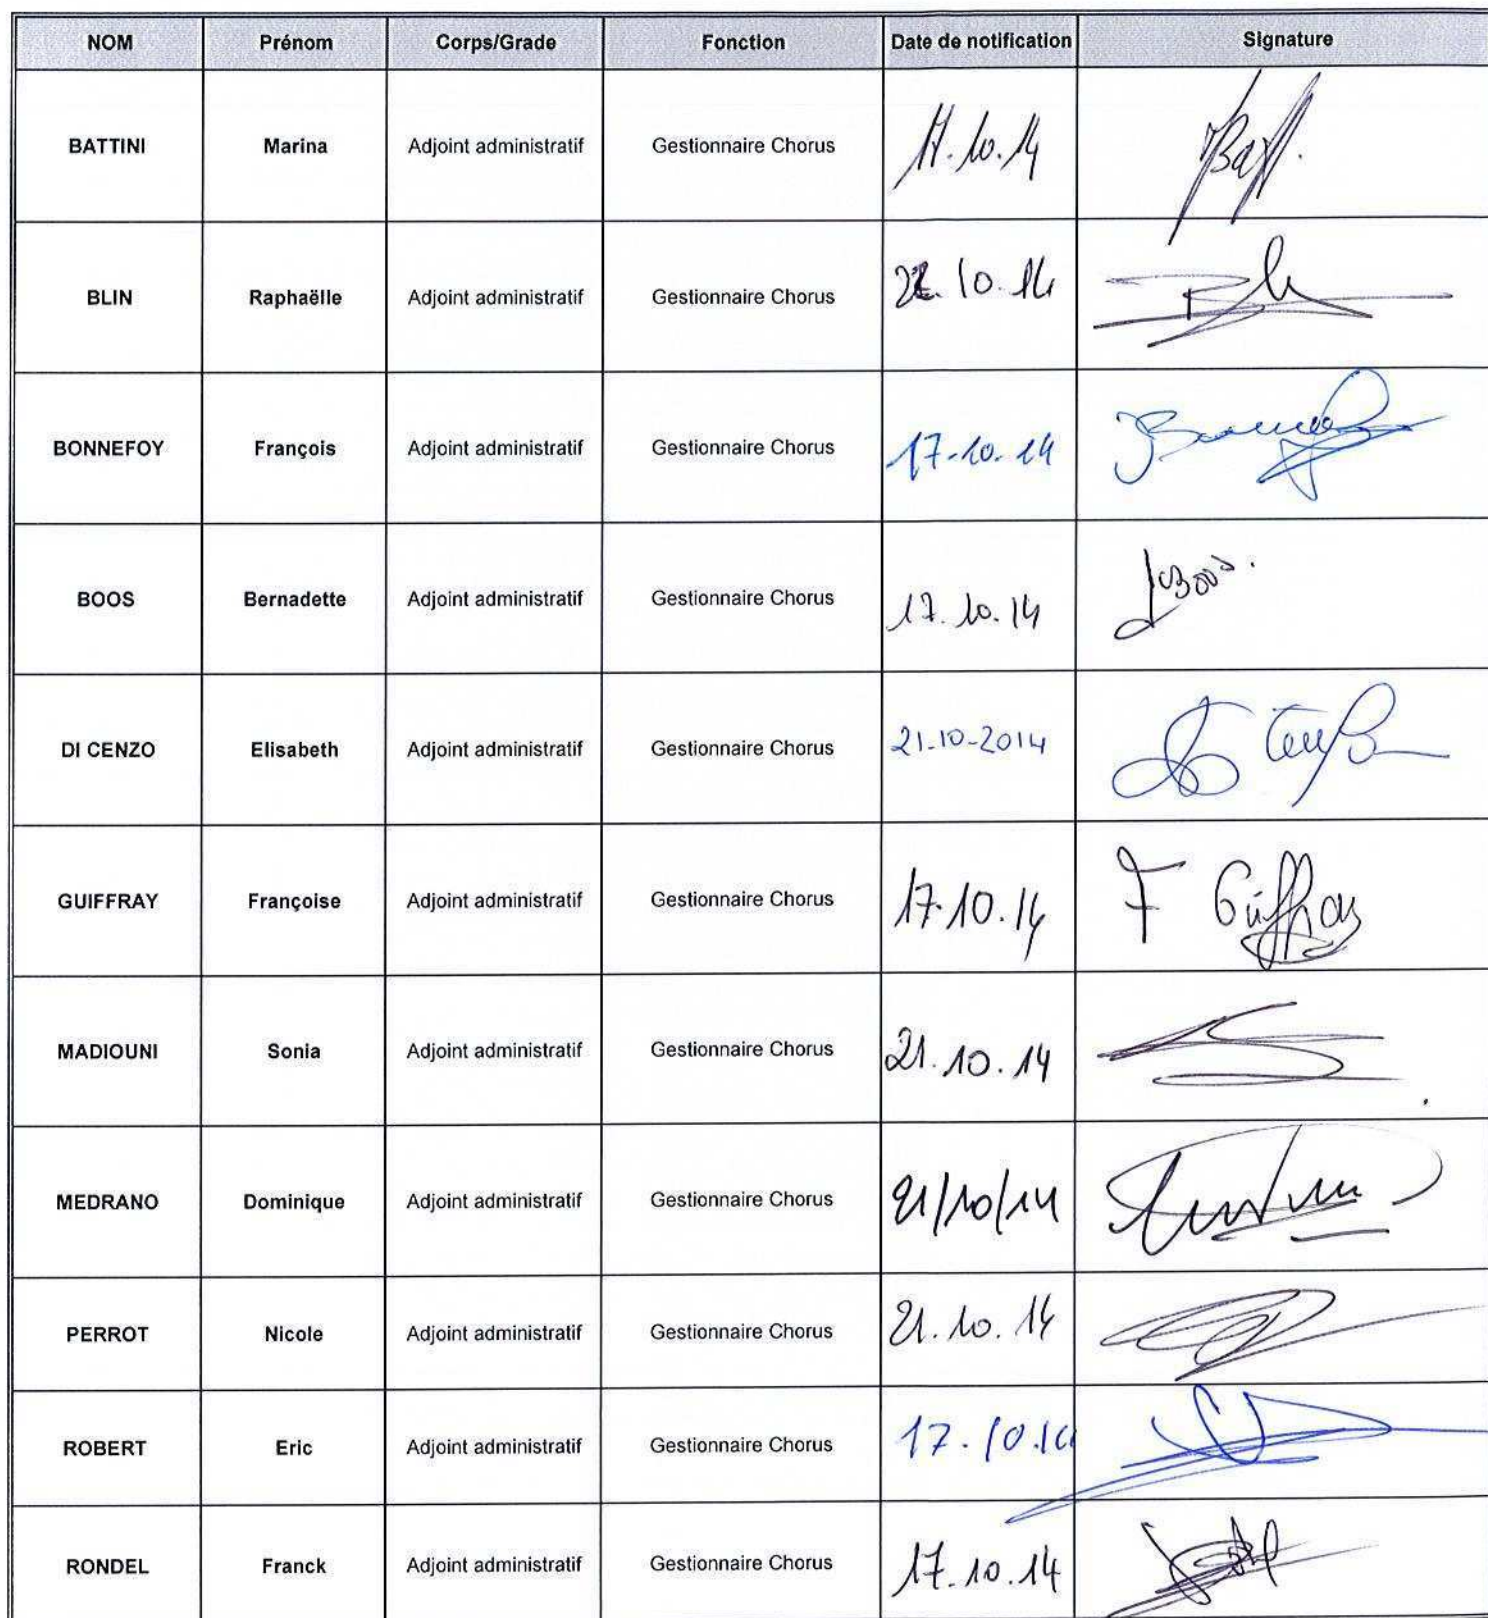 NOM Prénom Corps/Grade Fonction Date de notification Signature
BATTINI Marina Adjoint administratif Gestionnaire Chorus 17.10.14
BLIN Raphaëlle Adjoint administratif Gestionnaire Chorus 10.14
BONNEFOY François Adjoint administratif Gestionnaire Chorus 17-10-14
BOOS Bernadette Adjoint administratif Gestionnaire Chorus 17.10.14 Boos.
DI CENZO Elisabeth Adjoint administratif Gestionnaire Chorus 21-10-2014
GUIFFRAY Françoise Adjoint administratif Gestionnaire Chorus 17.10.14 F Guiffray
MADIOUNI Sonia Adjoint administratif Gestionnaire Chorus 21.10.14
MEDRANO Dominique Adjoint administratif Gestionnaire Chorus 21/10/14
PERROT Nicole Adjoint administratif Gestionnaire Chorus 21.10.14
ROBERT Eric Adjoint administratif Gestionnaire Chorus 17.10.14
RONDEL Franck Adjoint administratif Gestionnaire Chorus 17.10.14